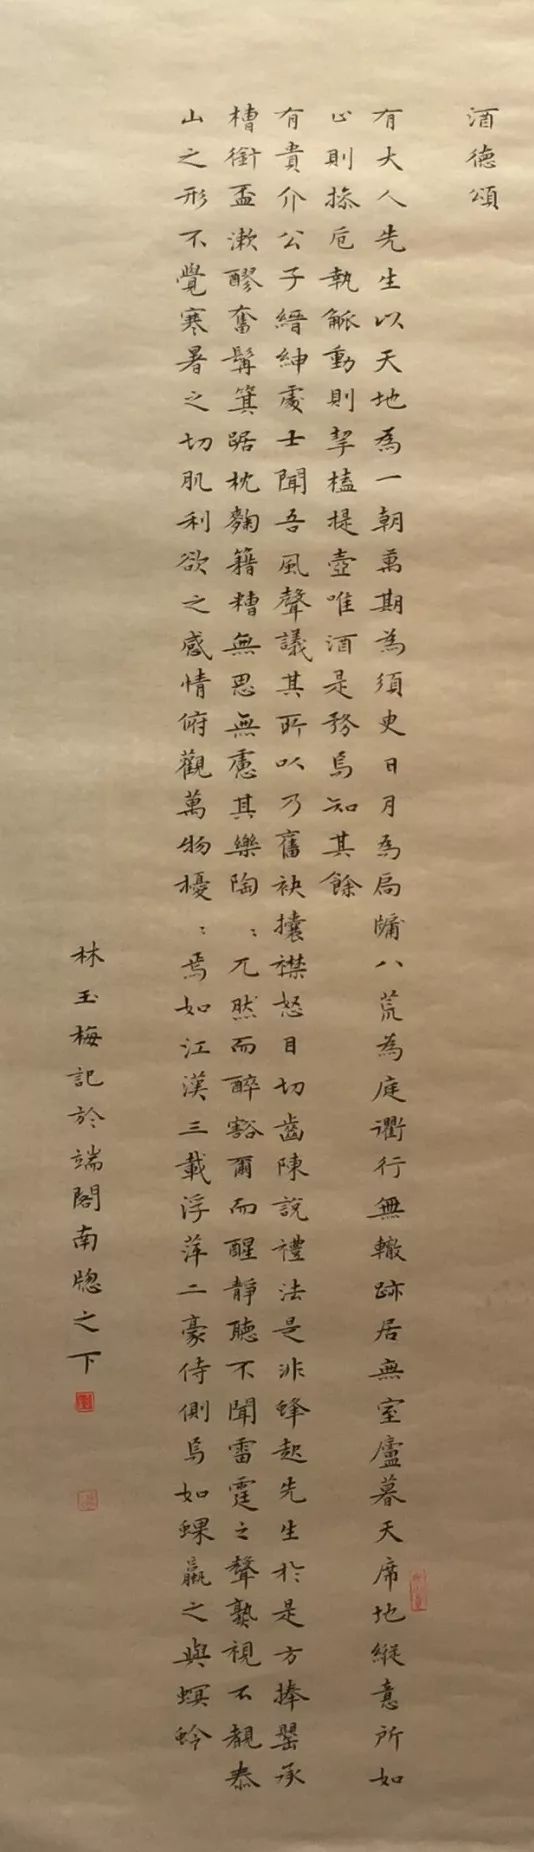 酒德頌
有大人先生以天地為一朝萬期為須臾日月為扃牖八荒為庭衢行無轍跡居無室廬暮天席地縱意所如
止則捺卮執觚動則挈榼提壺唯酒是務焉知其餘
有貴介公子縉紳處士聞吾風聲議其所以乃奮袂攘襟怒目切齒陳說禮法是非蜂起先生於是方捧罌承
槽銜盃漱醪奮髯箕踞枕麴籍糟無思無慮其樂陶〻兀然而醉豁爾而醒靜聽不聞雷霆之聲熟視不覩泰
山之形不覺寒暑之切肌利欲之感情俯觀萬物擾〻焉如江漢三載浮萍二豪侍側焉如蜾蠃之與螟蛉
林玉梅記於端閣南牕之下